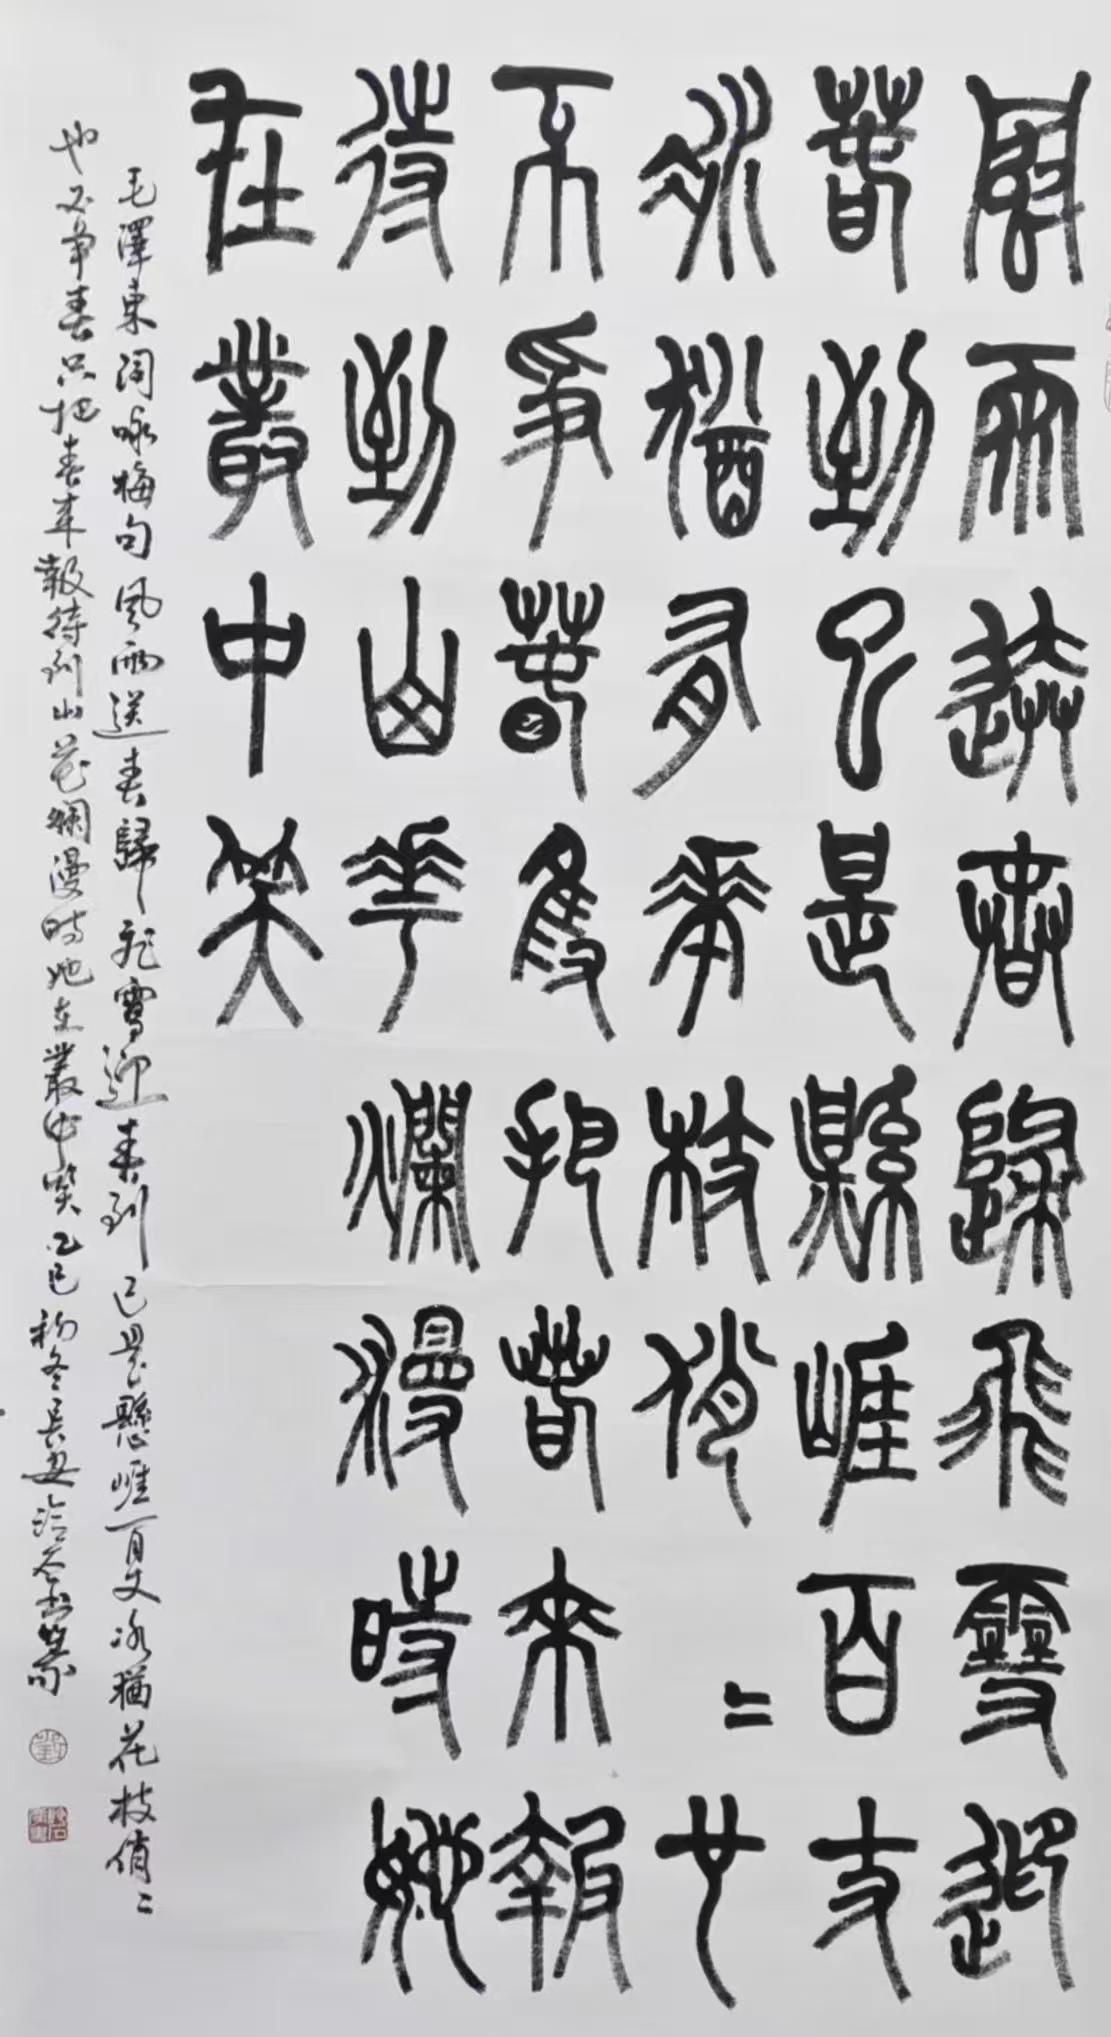 風雨送春歸飛雪迎
春到已是縣崖百丈
冰猶有花枝俏〻也
不爭春隻把春來報
待到山花爛漫時她
在叢中笑
毛澤東詞咏梅句風雨送春歸飛雪迎春到已是懸崖百丈冰猶花枝俏〻
也不争春只把春來報待到山花爛漫時她在叢中笑乙巳初冬